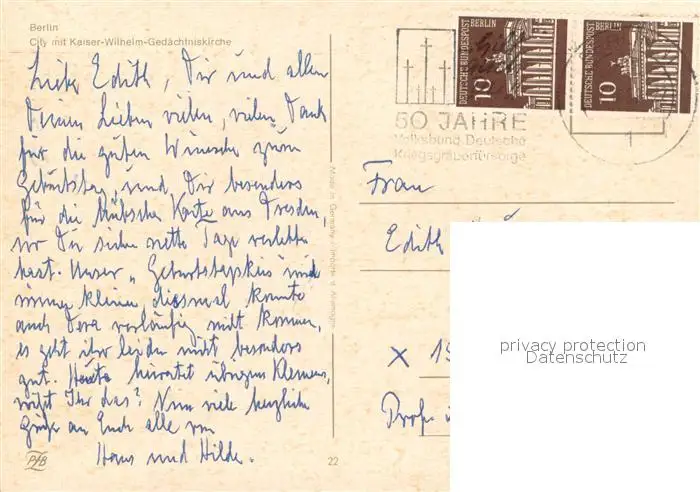 Berlin
City mit Kaiser-Wilhelm-Gedächtniskirche
Liebe Edith, Dir und allen
Deinen Lieben vielen, vielen Dank
für die guten Wünsche zum
Geburtstag, und Dir besonders
für die hübsche Karte aus Dresden,
wo Du sicher nette Tage verlebt
hast. Unser "Geburtstagskreis" wird
immer kleiner, diesmal konnte
auch Vera vorläufig nicht kommen,
es geht ihr leider nicht besonders
gut. Heute heiratet übrigens Klemens,
wißt Ihr das? Nun viele herzliche
Grüße an Euch alle von
Hans und Hilde.
PfB
22
Made in Germany / Importé d'Allemagne
DEUTSCHE BUNDESPOST BERLIN
10
DEUTSCHE BUNDESPOST BERLIN
10
50 JAHRE
Volksbund Deutsche
Kriegsgräberfürsorge
Frau
Edith
X 19
privacy protection
Datenschutz